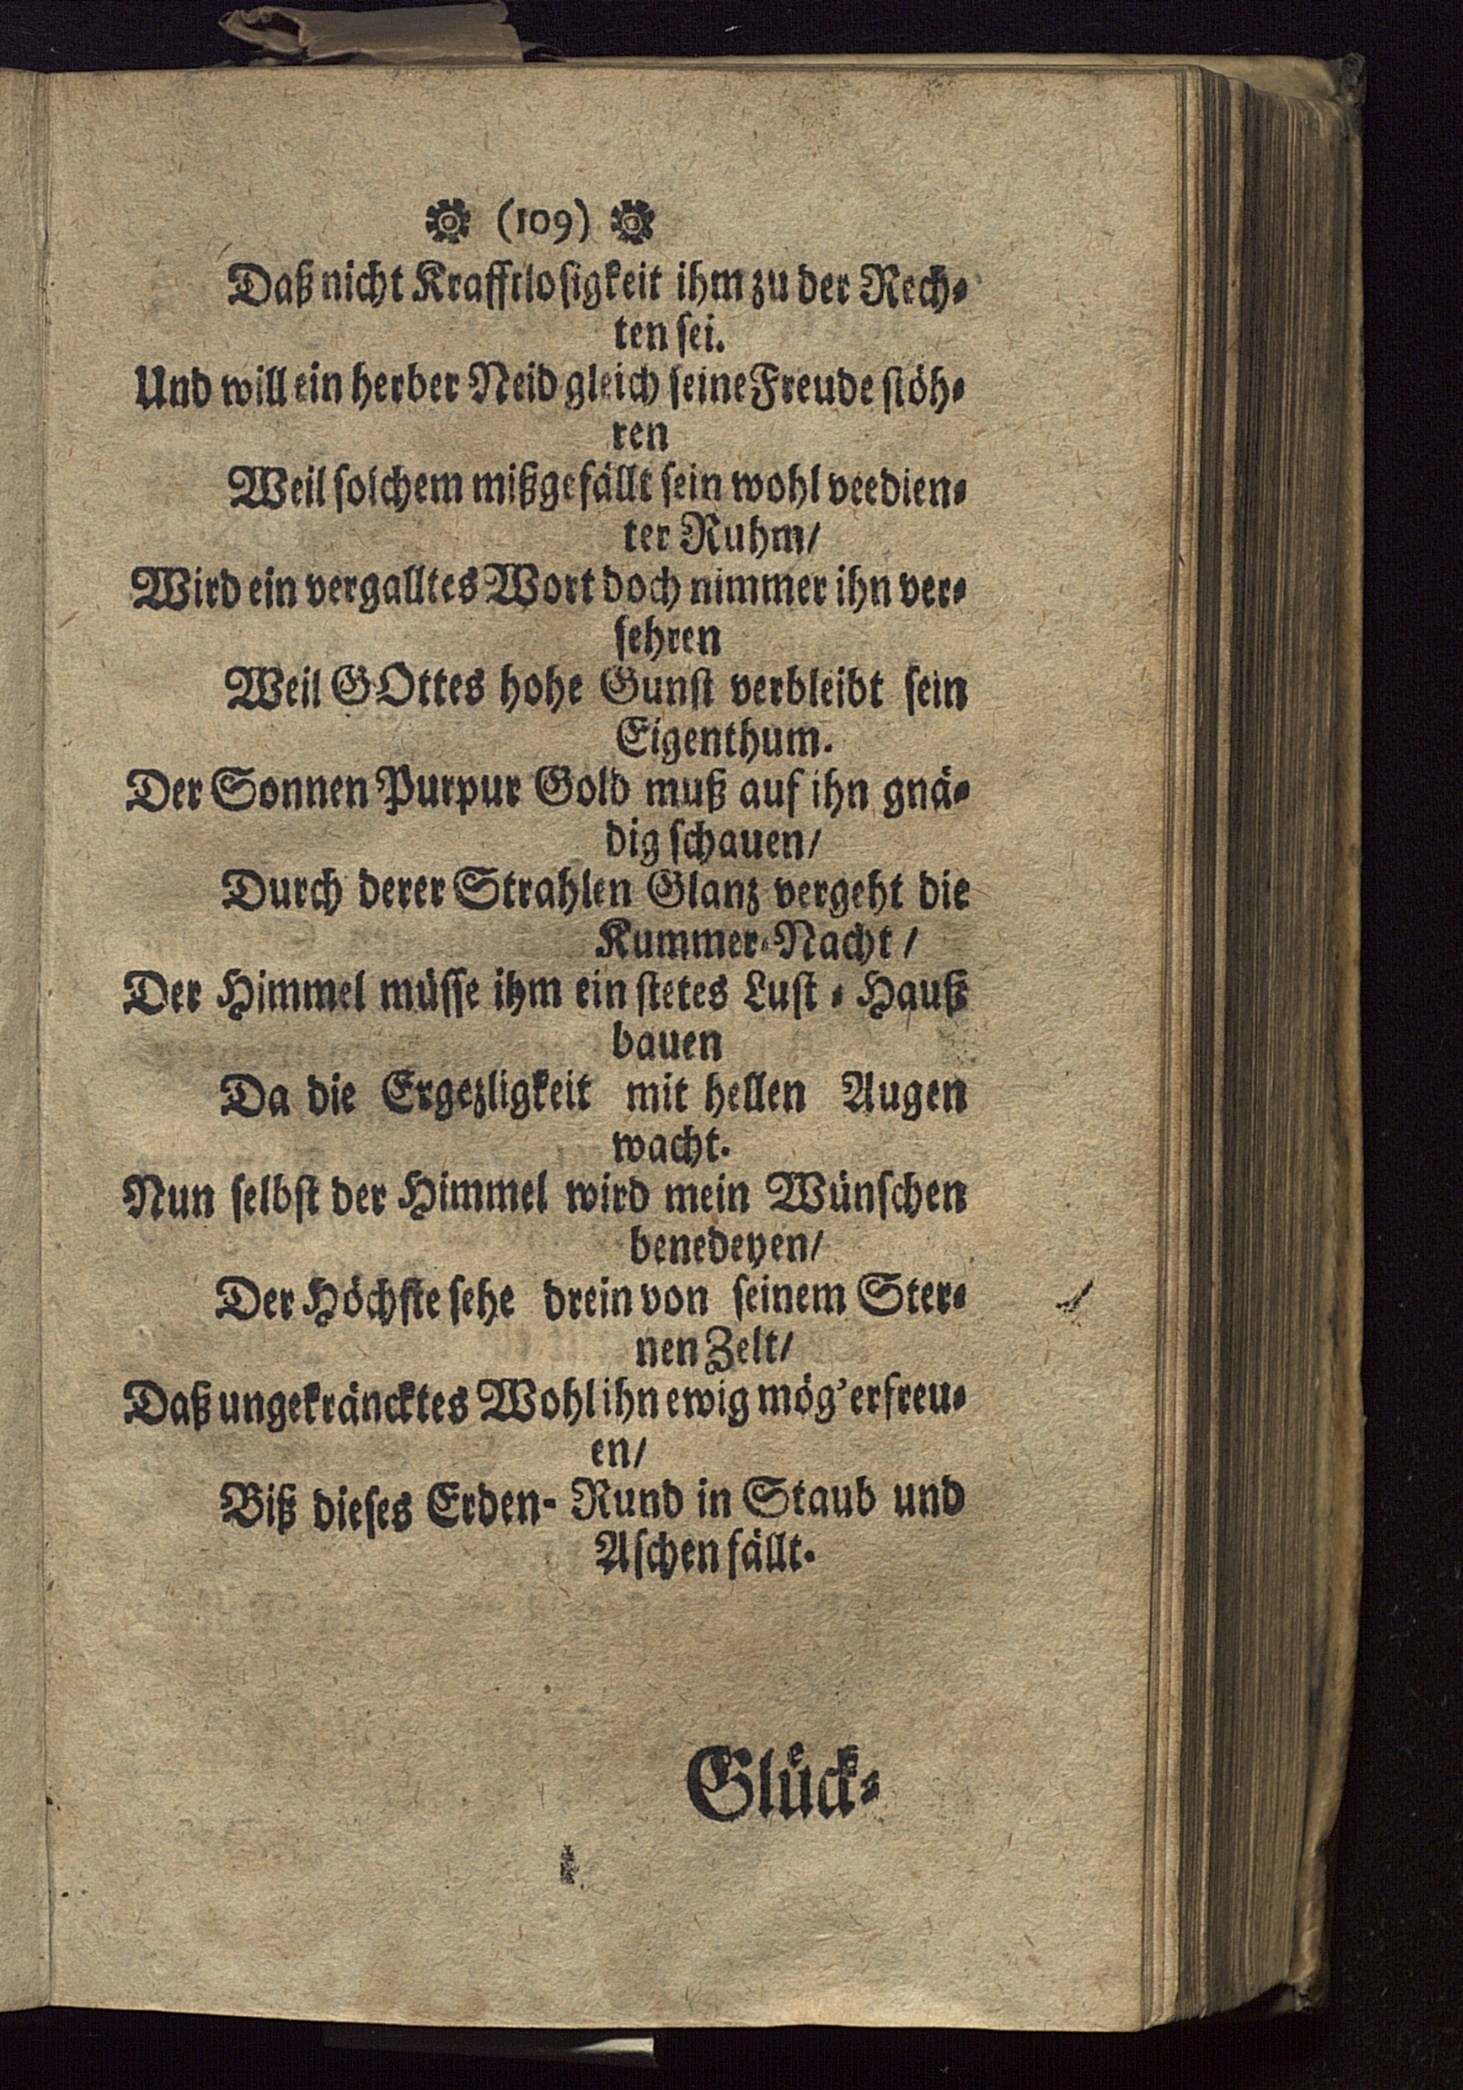 (109)
Daß nicht Krafftlosigkeit ihm zu der Rech-
ten sei.
Und will ein herber Neid gleich seine Freude stöh-
ren
Weil solchem mißgefällt sein wohl veedien-
ter Ruhm/
Wird ein vergalltes Wort doch nimmer ihn ver-
sehren
Weil GOttes hohe Gunst verbleibt sein
Eigenthum.
Der Sonnen Purpur Gold muß auf ihn gnä-
dig schauen/
Durch derer Strahlen Glanz vergeht die
Kummer-Nacht /
Der Himmel müsse ihm ein stetes Lust - Hauß
bauen
Da die Ergezligkeit mit hellen Augen
wacht.
Nun selbst der Himmel wird mein Wünschen
benedeyen/
Der Höchste sehe drein von seinem Ster-
nen Zelt/
Daß ungekräncktes Wohl ihn ewig mög' erfreu-
en/
Biß dieses Erden- Rund in Staub und
Aschen fällt.
Glück-